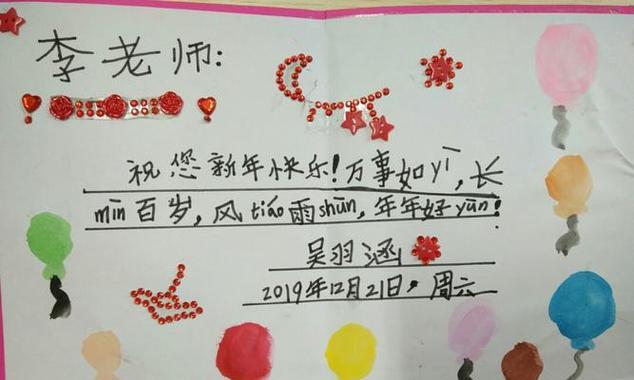 李老师:
祝您新年快乐!万事如yī,长
mìn百岁,风tiáo雨shūn,年年好yūn!
吴羽涵
2019年12月21日。周六